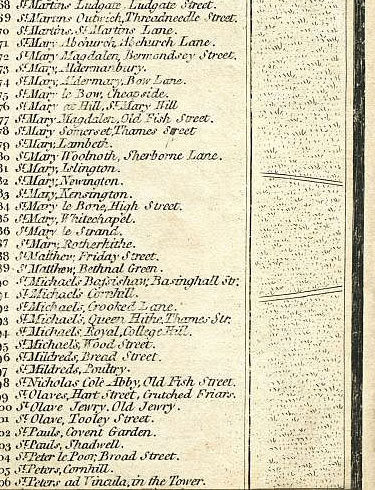 68 St. Martins Ludgate, Ludgate Street.
69 St. Martins Outwich, Threadneedle Street.
70 St. Martins, St. Martins Lane.
71 St. Mary Abchurch, Abchurch Lane.
72 St. Mary Magdalen, Bermondsey Street.
73 St. Mary, Aldermanbury.
74 St. Mary, Aldermary, Bow Lane.
75 St. Mary le Bow, Cheapside.
76 St. Mary at Hill, St. Mary Hill
77 St. Mary Magdalen, Old Fish Street.
78 St. Mary Somerset, Thames Street
79 St. Mary, Lambeth.
80 St. Mary Woolnoth, Sherborne Lane.
81 St. Mary, Islington.
82 St. Mary, Newington.
83 St. Mary, Kensington.
84 St. Mary le Bone, High Street.
85 St. Mary, Whitechapel.
86 St. Mary le Strand.
87 St. Mary, Rotherhithe.
88 St. Matthew, Friday Street.
89 St. Matthew, Bethnal Green.
90 St. Michaels Bassishaw, Basinghall Str.
91 St. Michaels Cornhill.
92 St. Michaels, Crooked Lane.
93 St. Michaels, Queen Hithe, Thames Str.
94 St. Michaels, Royal, College Hill.
95 St. Michaels, Wood Street.
96 St. Mildreds, Bread Street.
97 St. Mildreds, Poultry.
98 St. Nicholas Cole Abby, Old Fish Street.
99 St. Olaves, Hart Street, Crutched Friars.
00 St. Olave Jewry, Old Jewry.
01 St. Olave, Tooley Street.
02 St. Pauls, Covent Garden.
03 St. Pauls, Shadwell.
04 St. Peter le Poor, Broad Street.
05 St. Peters, Cornhill.
06 St. Peters ad Vincula, in the Tower.